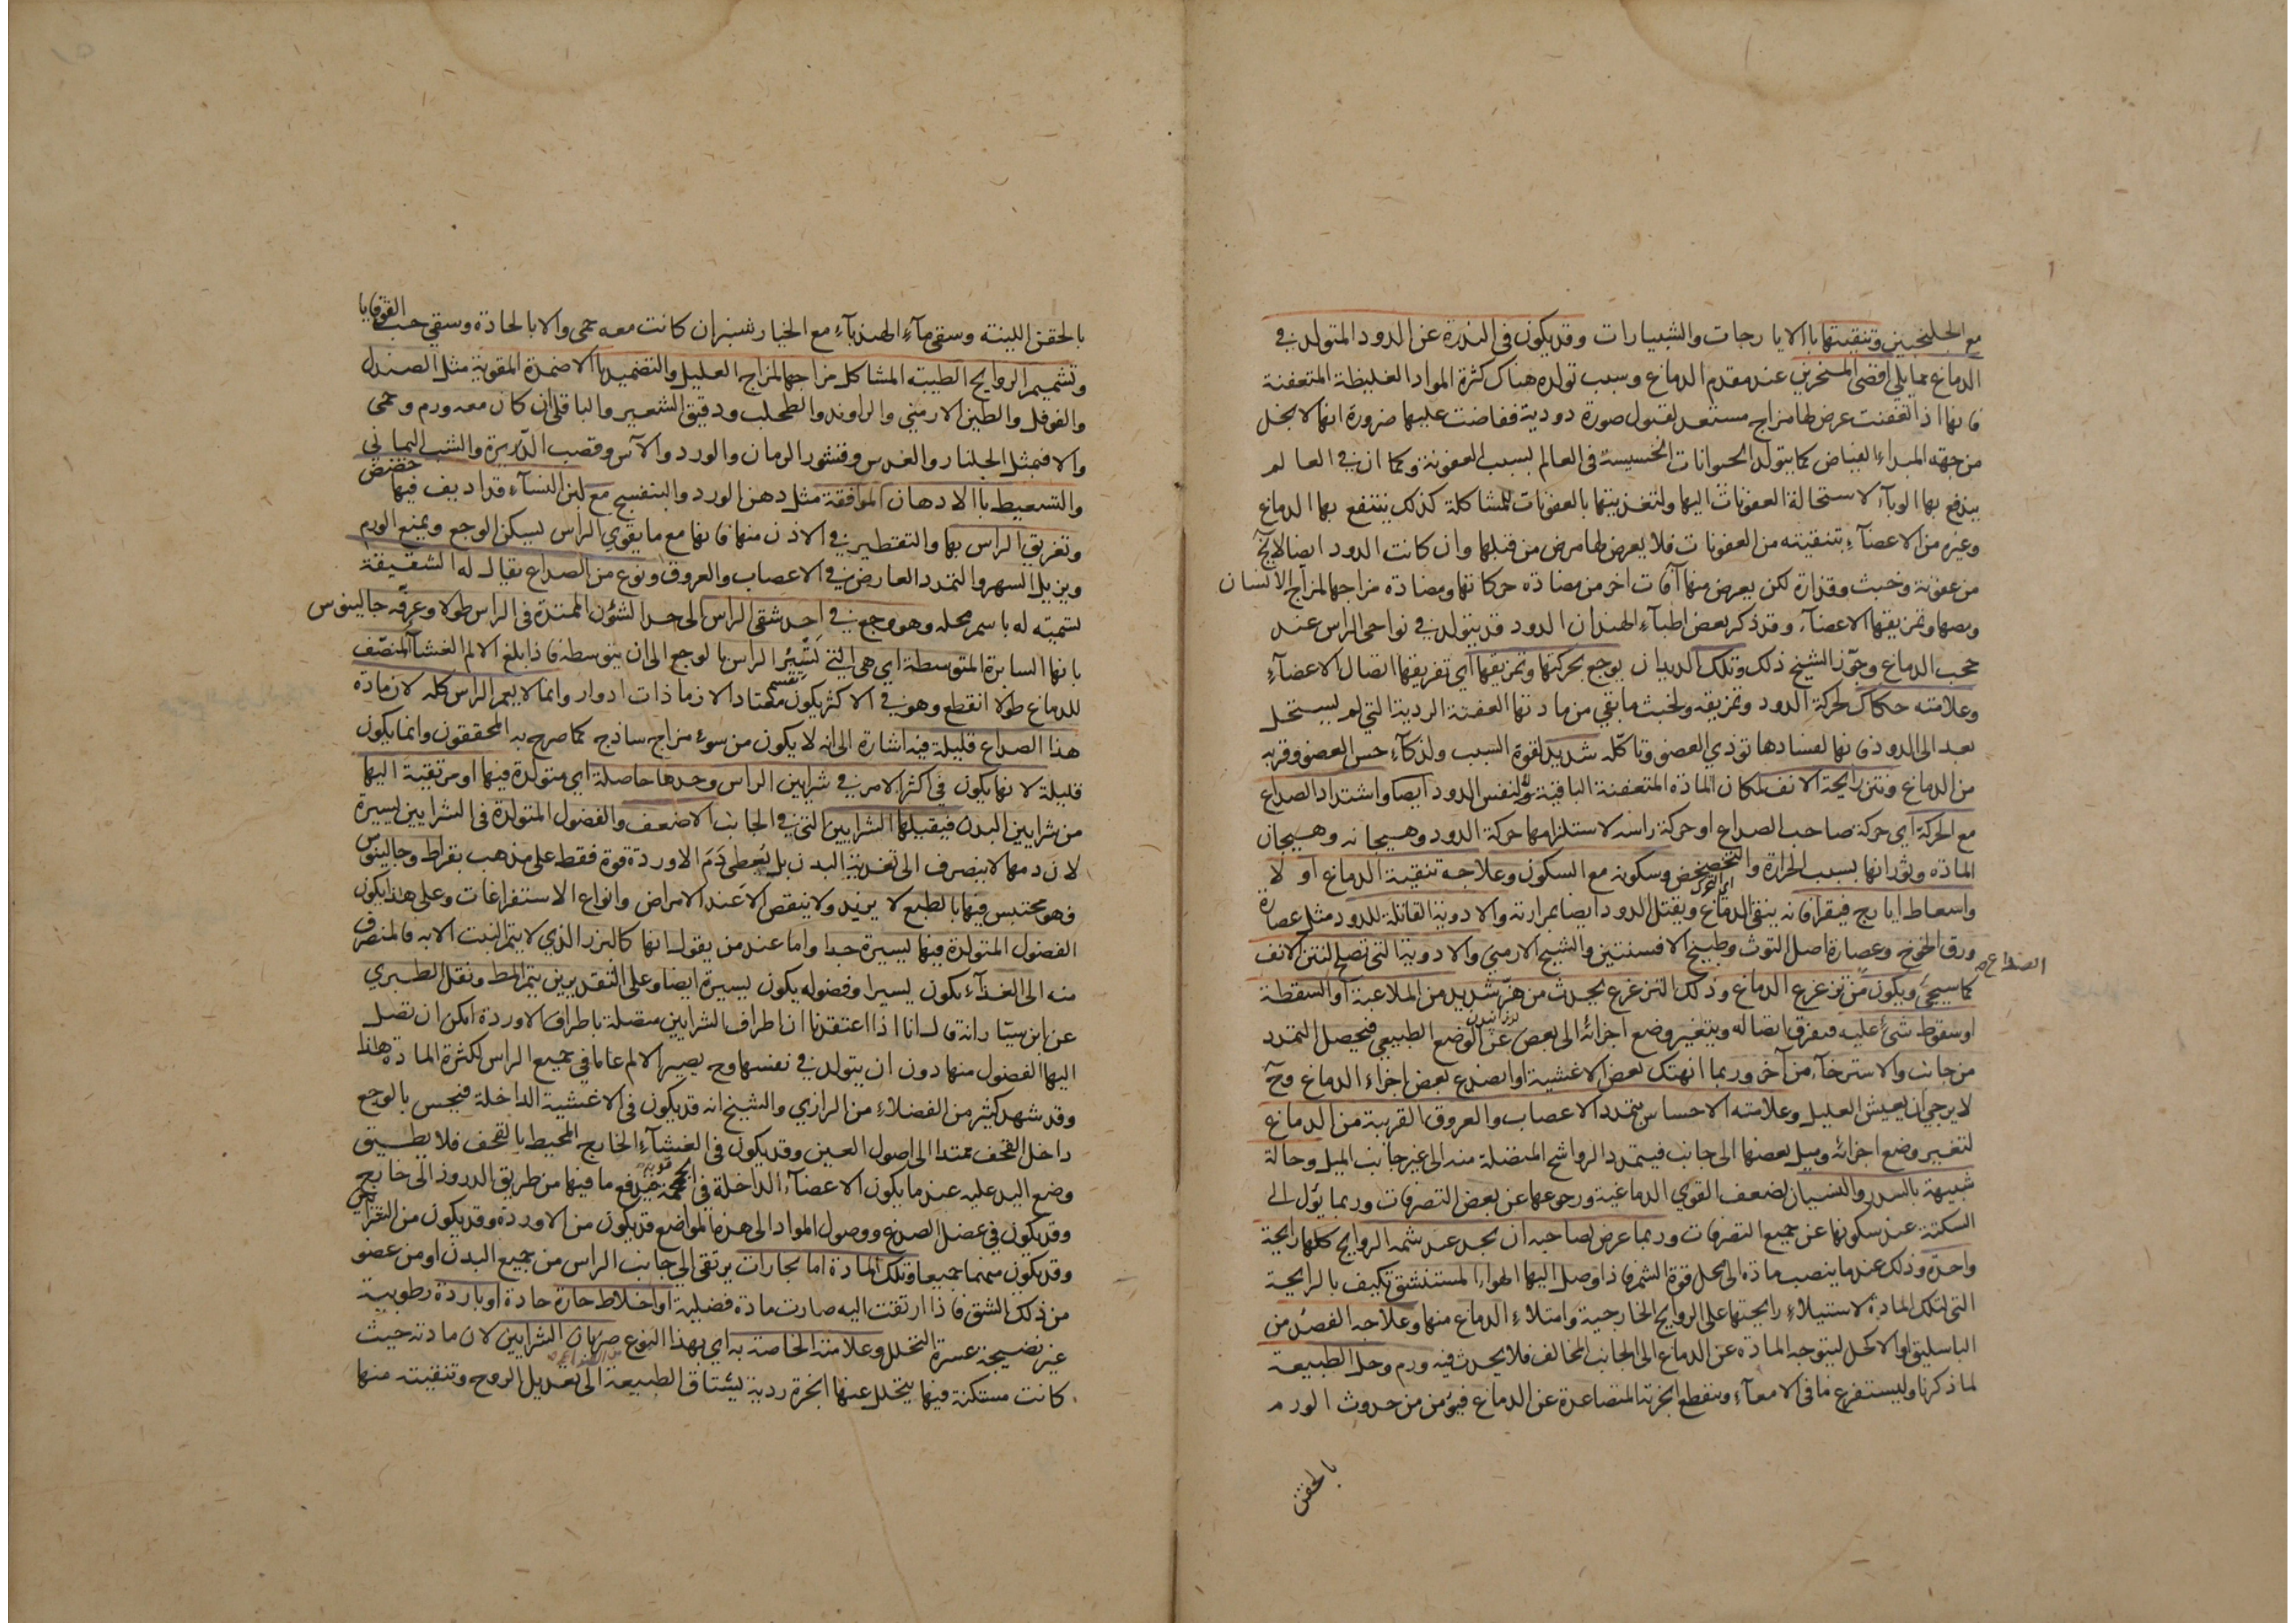 مع الجلنجبين وتنقيتها باالايارجات والشبيارات وقد يكون فى الندرة عن الدود المتولد في
الدماغ مما يلي اقصى المنخرين عند مقدم الدماغ وسبب تولده هناك كثرة المواد الغليظة المتعفنة
فانها اذا تعفنت عرض لها مزاج مستعد لقبول صورة دودية ففاضت عليها ضرورة انها لا بخل
من جهة المبداء الفياض كما يتولد الحيوانات الخسيسة فى العالم بسبب العفونة وكما ان في العالم
يندفع بها الوباء لاستحالة العفونات اليها ولتغذيتها بالعفونات للمشاكلة كذلك ينتفع بها الدماغ
وغيره من الاعضآء بتنقيته من العفونات فلا يعرض لها مرض من قبلها وان كانت الدود ايضا لا يخ
من عفونة وخبث وقذارة لكن يعرض منها آفات اخر من مضادة حركاتها ومضادة مزاجها لمزاج الانسان
ومصها وتمزيقها الاعضآء وقد ذكر بعض اطبآء الهند ان الدود قد يتولد في نواحى الراس عند
حجب الدماغ وجوّز الشيخ ذلك وتلك الديدان يوجع بحركتها وتمزيقها اي تفريقها اتصال الاعضآء
وعلامته حكاك لحركة الدود وتمزيقه ولخبث ما بقي من مادتها العفنة الردية التي لم يستحل
بعد الى الدود فانها لفسادها تؤذي العضو وتاكله شديد لقوة السبب ولذكآء حس العضو وقربه
من الدماغ ونتن رايحة الانف لمكان المادة المتعفنة الباقية ولنفس الدود ايضا واشتداد الصداع
مع الحركة اي حركة صاحب الصداع او حركة راسه لاستلزامها حركة الدود وهيجانه وهيجان
المادة وثورانها بسبب الحرارة والتخضخض وسكونه مع السكون وعلاجه تنقية الدماغ اولا
واسعاط ايارج فيقرا فانه ينقى الدماغ ويقتل الدود ايضا بمرارته والادوية القاتلة للدود مثل عصارة
ورق الخوخ وعصارة اصل التوث وطبيخ الافسنتين والشيح الارمني والادوية التى تصلح لنتن الانف
الصداع
كما سيجئ ويكون من تزعزع الدماغ وذلك التزعزع يحدث من هز شديد من الملاعبة او السقطة
او سقوط شئ عليه فيفرق اتصاله ويتغير وضع اجزائه الى بعض عن الوضع الطبيعي فيحصل التمدد
من جانب والاسترخآء من آخر وربما انهتك بعض الاغشية او انصدع بعض اجزاء الدماغ وح
لا يرجى ان يعيش العليل وعلامته الاحساس بتمدد الاعصاب والعروق القريبة من الدماغ
لتغيير وضع اجزائه وميل بعضها الى جانب فيتمدد الرواشح المتصلة منه الى غير جانب الميل وحالة
شبيهة بالسدر والنسيان لضعف القوي الدماغية ورجوعها عن بعض التصرفات وربما يؤل الى
السكتة عند سكونها عن جميع التصرفات وربما عرض لصاحبه ان يجد عند شمه الروايح كلها رايحة
واحدة وذلك عند ما ينصب مادة الى محل قوة الشم فاذا وصل اليها الهواء المستنشق تكيف بالرايحة
التى لتلك المادة لاستيلاء رايحتها على الروايح الخارجية وامتلاء الدماغ منها وعلاجه الفصد من
الباسليق او الاكحل ليتوجه المادة عن الدماغ الى الجانب المخالف فلا يحدث فيه ورم وحل الطبيعة
لما ذكرنا وليستفرغ ما فى الامعآء وينقطع ابخرتها المتصاعدة عن الدماغ فيؤمن من حدوث الورم
بالحقن
بالحقن اللينة وسقى مآء الهندبآء مع الخيار شنبر ان كانت معه حمى والا بالحادة وسقي حب القوقايا
وتشميم الروايح الطيبة المشاكل مزاجها لمزاج العليل والتضميد باالاضمدة المقوية مثل الصندل
والفوفل والطين الارمني والراوند والطحلب ودقيق الشعير والباقلى ان كان معه ورم وحمى
والا فبمثل الجلنار والعدس وقشور الرمان والورد والآس وقصب الذريرة والشب اليماني
والتسعيط باالادهان الموافقة مثل دهن الورد والبنفسج مع لبن النسآء قد اديف فيها حضض
وتغريق الراس بها والتقطير في الاذن منها فانها مع ما يقوي الراس يسكن الوجع ويمنع الورم
ويزيل السهر والتمدد العارض في الاعصاب والعروق ونوع من الصداع يقال له الشقيقة
تسمية له باسم محله وهو وجع في احد شقى الراس الى حد الشؤن الممتدة فى الراس طولا وعرّفه جالينوس
بانها السابرة المتوسطة اي هى التى تسبر الراس بالوجع الى ان يتوسطه فاذا بلغ الالم الغشآء المنصّف
للدماغ طولا انقطع وهو في الاكثر يكون معتادا لازما ذات ادوار وانما لا يعم الراس كله لان مادة
هذا الصداع قليلة فيه اشارة الى انه لا يكون من سوء مزاج ساذج كما صرح به المحققون وانما يكون
قليلة لانها يكون في اكثر الامر في شرايين الراس وحدها حاصلة اي متولدة فيها او مرتقية اليها
من شرايين البدن فيقبلها الشرايين التى في الجانب الاضعف والفضول المتولدة فى الشرايين يسيرة
لان دمها لا ينصرف الى تغذية البدن بل يُعطى دَمَ الاوردة قوة فقط على مذهب بقراط وجالينوس
فهو محتبس فيها بالطبع لا يزيد ولا ينقص الا عند الامراض وانواع الاستفراغات وعلى هذا يكون
الفضول المتولدة فيها يسيرة جدا واما عند من يقول انها كالبزر الذي لا يتم النبت الا به فالمنصرف
منه الى الغذآء يكون يسيرا وفضوله يكون يسيرة ايضا وعلى التقديرين يتم المط ونقل الطبري
عن ابن سيّار انه قال انا اذا اعتقدنا ان اطراف الشرايين متصلة باطراف الاوردة امكن ان تصل
اليها الفضول منها دون ان يتولد في نفسها وح يصير الالم عاما في جميع الراس لكثرة المادة هذا
وقد شهد كثير من الفضلاء من الرازي والشيخ انه قد يكون فى الاغشية الداخلة فيحس بالوجع
داخل القحف ممتدا الى اصول العين وقد يكون فى الغشآء الخارج المحيط بالقحف فلا يطيق
وضع اليد عليه عند ما يكون الاعضآء الداخلة فى الجمجمة قوية فيدفع ما فيها من طريق الدروز الى خارج
وقد يكون في عضل الصدغ ووصول المواد الى هذه المواضع قد يكون من الاوردة وقد يكون من الشرايين
وقد يكون منهما جميعا وتلك المادة اما بخارات يرتقى الى جانب الراس من جميع البدن او من عضو
من ذلك الشق فاذا ارتقت اليه صارت مادة فضلية او اخلاط حارة حادة او باردة رطوبية
غير نضيجة عسرة التحلل وعلامته الخاصة به اي بهذا النوع من الصداع ضربان الشرايين لان مادته حيث
كانت مستكنة فيها يتحلل عنها ابخرة ردية يشتاق الطبيعة الى تعديل الروح وتنقيته منها